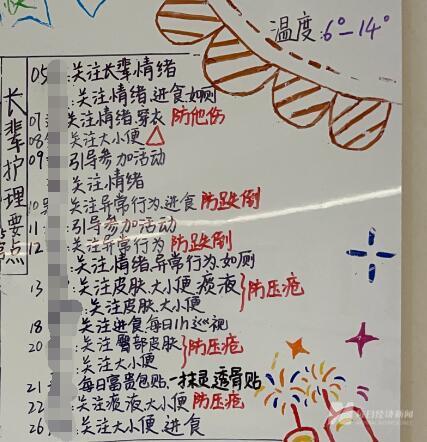 快
温度:6°-14°
长辈护理要点
05 :关注长辈情绪
:关注情绪.进食.如厕
07 关注情绪.穿衣 防他伤
08 关注大小便
09 引导参加活动
:关注情绪
10 关注异常行为.进食 防跌倒
11 :引导参加活动
12 :关注异常行为 防跌倒
:关注情绪.异常行为.如厕
13 :关注皮肤.大小便.痰液 防压疮
:关注皮肤.大小便
18 :关注进食.每日1h巡视
20 :关注臀部皮肤 防压疮
:关注大小便
21 每日富贵包贴,一抹灵透骨贴
22 :关注痰液.大小便 防压疮
26 .关注大小便.进食
每日经济新闻